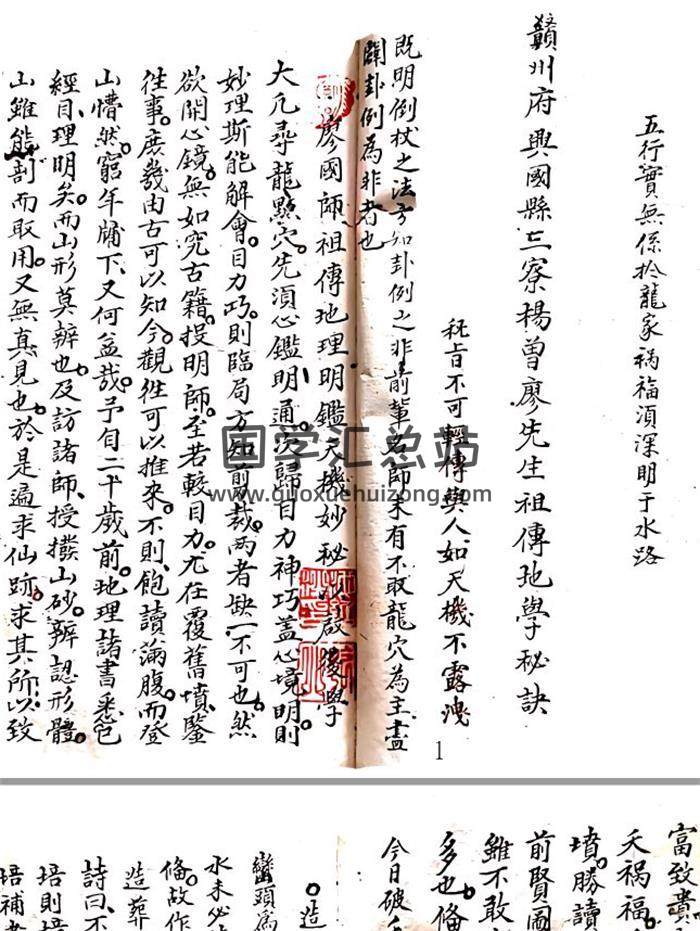 五行實無係於龍家禍福須深明于水路
贛州府興國縣三寮楊曾廖先生祖傳地學秘訣
秘旨不可輕傳與人如天機不露洩
既明倒杖之法方知卦例之非前輩名師未有不取龍穴為主盡
闢卦例為非者也
廖國師祖傳地理明鑑天機妙秘以啟後學
大凡尋龍點穴。先須心鑑明通。次歸目力神巧蓋心境明則
妙理斯能解會。目力巧。則臨局方知剪裁。两者缺一不可也。然
欲開心鏡。無如究古籍。授明師。至若較目力。尤在覆舊墳。鑒
往事。庶幾由古可以知今。觀往可以推來。不則飽讀滿腹。而登
山懵然。窮年牖下、又何益哉。予自二十歲前。地理諸書悉包
經目。理明矣。而山形莫辨也。及訪諸師、授撥山砂。辨認形體。
山雖能剖而取用。又無真見也。於是遍求仙跡。求其所以致
国学汇总站
www.guoxuehuizong.com
1
富致貴
夭禍福
墳。勝讀
前賢圖
雖不敢
多也。俻
今日破
。造
巒頭為
水未必
俻。故作
造葬
詩曰不
培則培
培補者